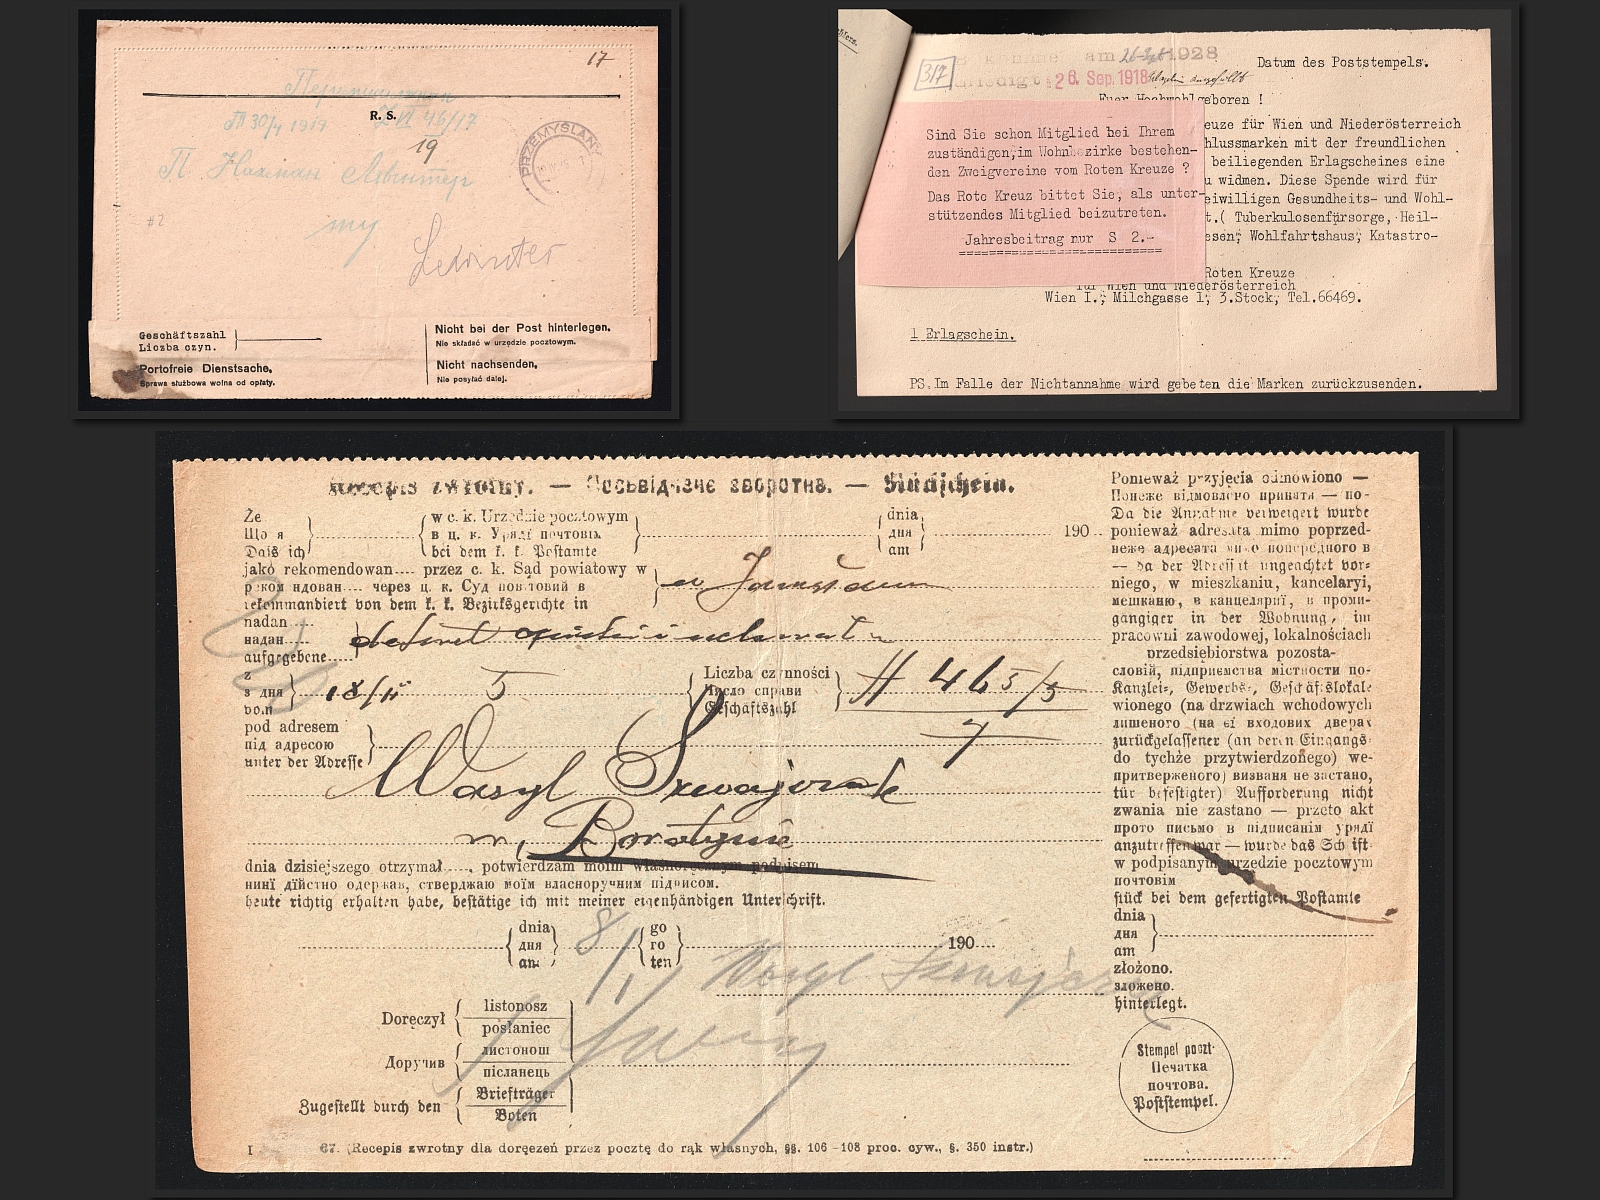 17
R. S.
19
PRZEMYSLANY
#2
my
Geschäftszahl
Liczba czyn.
Portofreie Dienstsache,
Sprawa służbowa wolna od opłaty.
Nicht bei der Post hinterlegen.
Nie składać w urzędzie pocztowym.
Nicht nachsenden,
Nie posyłać dalej.
am 1928
317
26. Sep. 1918
Datum des Poststempels.
Euer Hochwohlgeboren !
euze für Wien und Niederösterreich
hlussmarken mit der freundlichen
beiliegenden Erlagscheines eine
u widmen. Diese Spende wird für
eiwilligen Gesundheits- und Wohl-
t.( Tuberkulosenfürsorge, Heil-
esen, Wohlfahrtshaus, Katastro-
Roten Kreuze
für Wien und Niederösterreich
Wien I., Milchgasse 1, 3.Stock, Tel.66469.
1 Erlagschein.
PS.Im Falle der Nichtannahme wird gebeten die Marken zurückzusenden.
Sind Sie schon Mitglied bei Ihrem
zuständigen,im Wohnbezirke bestehen-
den Zweigvereine vom Roten Kreuze ?
Das Rote Kreuz bittet Sie, als unter-
stützendes Mitglied beizutreten.
Jahresbeitrag nur S 2.-
Recepis zwrotny. — Посьвідчанє зворотне. — Rückschein.
Że
Що я
Daß ich
w c. k. Urzędzie pocztowym
в ц. к. Уряді почтовім
bei dem k. k. Postamte
dnia
дня
am
190
jako rekomendowan.... przez c. k. Sąd powiatowy w
рекомендован.... через ц. к. Суд повітовий в
rekommandiert von dem k. k. Bezirksgerichte in
nadan.....
надан.....
aufgegebene.....
z
з дня
vom
18/II 5
Liczba czynności
Число справи
Geschäftszahl
465/5
7
pod adresem
під адресою
unter der Adresse
Wasyl
dnia dzisiejszego otrzymał...... potwierdzam moim własnoręcznym podpisem
нинї дїйстно одержав, стверджаю моїм власноручним підписом.
heute richtig erhalten habe, bestätige ich mit meiner eigenhändigen Unterschrift.
dnia
дня
am
8/1
go
го
ten
190
Doręczył
listonosz
posłaniec
Доручив
листонош
післанець
Zugestellt durch den
Briefträger
Boten
I 67. (Recepis zwrotny dla doręczeń przez pocztę do rąk własnych, §§. 106–108 proc. cyw., §. 350 instr.)
Ponieważ przyjęcia odmówiono —
Понеже відмовлено принятя — по-
Da die Annahme verweigert wurde
ponieważ adresata mimo poprzed-
неже адресата мимо попередного в
— da der Adressat ungeachtet vor-
niego, w mieszkaniu, kancelaryi,
мешканю, в канцелярії, в проми-
gängiger in der Wohnung, im
pracowni zawodowej, lokalnościach
przedsiębiorstwa pozosta-
словій, підприємства містности по-
Kanzlei-, Gewerbs-, Geschäftslokale
wionego (na drzwiach wchodowych
лишеного (на єї входових дверах
zurückgelassener (an deren Eingangs-
do tychże przytwierdzonego) we-
притверженого) визваня не застано,
tür befestigter) Aufforderung nicht
zwania nie zastano — przeto akt
прото письмо в підписанім уряді
anzutreffen war — wurde das Schrift-
w podpisanym urzędzie pocztowym
почтовім
stück bei dem gefertigten Postamte
dnia
дня
am
złożono.
зложено.
hinterlegt.
Stempel poczt.
Печатка
почтова.
Poststempel.